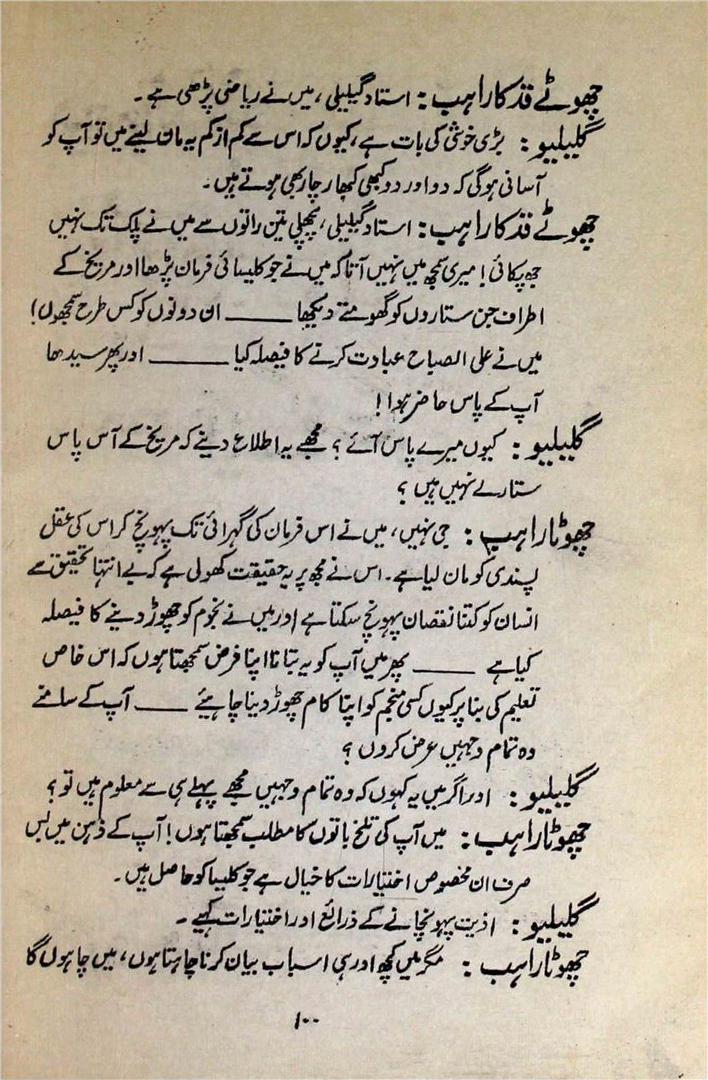 چھوٹے قد کا راہب : استاد گیلیلی ، میں نے ریاضی پڑھی ہے ۔
گلیلیو : بڑی خوشی کی بات ہے ، کیوں کہ اس سے کم از کم یہ مان لینے میں تو آپ کو
آسانی ہوگی کہ دو اور دو کبھی کبھار چار بھی ہوتے ہیں ۔
چھوٹے قد کا راہب : استاد گیلیلی ، پچھلی تین راتوں سے میں نے پلک تک نہیں
جھپکائی ! میری سمجھ میں نہیں آتا کہ میں نے جو کلیسائی فرمان پڑھا اور مریخ کے
اطراف جن ستاروں کو گھومتے دیکھا ــــــ ان دونوں کو کس طرح سمجھوں !
میں نے علی الصباح عبادت کرنے کا فیصلہ کیا ــــــ اور پھر سیدھا
آپ کے پاس حاضر ہوا !
گلیلیو : کیوں میرے پاس آئے ؟ مجھے یہ اطلاع دینے کہ مریخ کے آس پاس
ستارے نہیں ہیں ؟
چھوٹا راہب : جی نہیں ، میں نے اس فرمان کی گہرائی تک پہونچ کر اس کی عقل
پسندی کو مان لیا ہے ۔ اس نے مجھ پر یہ حقیقت کھولی ہے کہ بے انتہا تحقیق سے
انسان کو کتنا نقصان پہونچ سکتا ہے اور میں نے نجوم کو چھوڑ دینے کا فیصلہ
کیا ہے ــــــ پھر میں آپ کو یہ بتانا اپنا فرض سمجھتا ہوں کہ اس خاص
تعلیم کی بنا پر کیوں کسی منجم کو اپنا کام چھوڑ دینا چاہیئے ــــــ آپ کے سامنے
وہ تمام وجہیں عرض کروں ؟
گلیلیو : اور اگر میں یہ کہوں کہ وہ تمام وجہیں مجھے پہلے ہی سے معلوم ہیں تو ؟
چھوٹا راہب : میں آپ کی تلخ باتوں کا مطلب سمجھتا ہوں ! آپ کے ذہن میں بس
صرف ان مخصوص اختیارات کا خیال ہے جو کلیسا کو حاصل ہیں ۔
گلیلیو : اذیت پہونچانے کے ذرائع اور اختیارات کہیے ۔
چھوٹا راہب : مگر میں کچھ اور ہی اسباب بیان کرنا چاہتا ہوں ، میں چاہوں گا
۱۰۰